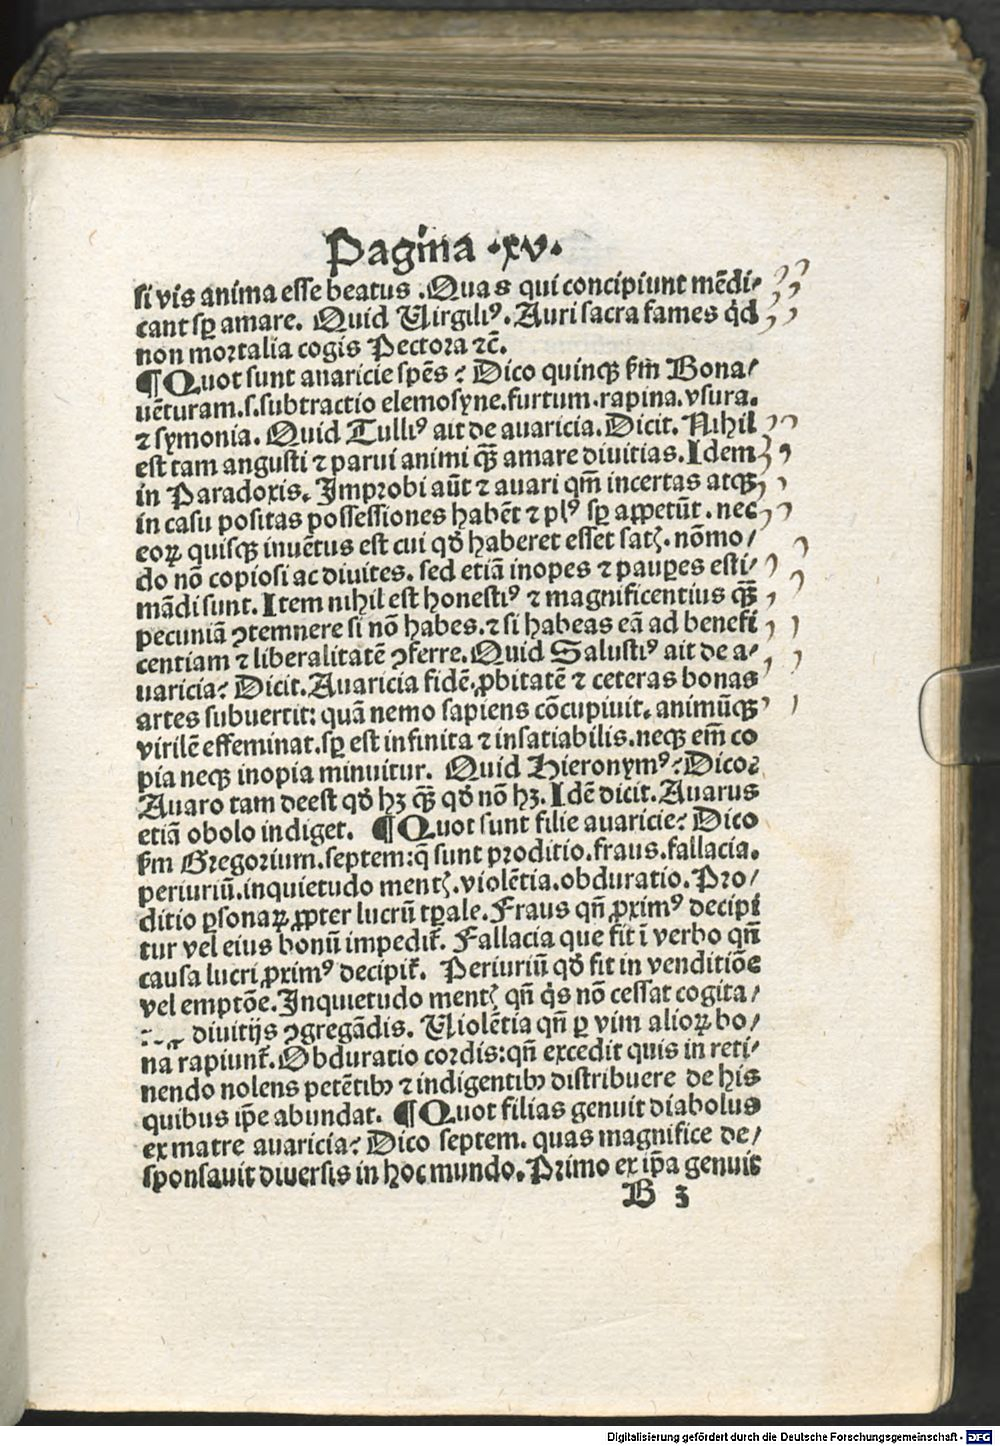 Pagina .xv.
si vis anima esse beatus .Quas qui concipiunt mēdi⸗
cant sꝑ amare. Quid Uirgiliꝰ. Auri sacra fames qͥd
non mortalia cogis Pectora ⁊c̄.
¶Quot sunt auaricie spēs? Dico quinqꝫ ẜm Bona⸗
uēturam.s.subtractio elemosyne.furtum.rapina.vsura.
⁊ symonia. Quid Tulliꝰ ait de auaricia. Dicit. Nihil
est tam angusti ⁊ parui animi qꝫ̄ amare diuitias. Idem
in Paradoxis. Improbi aūt ⁊ auari qm̄ incertas atqꝫ
in casu positas possessiones habēt ⁊ plꝰ sꝑ aꝑpetūt. nec
eoꝝ quisqꝫ inuētus est cui qđ haberet esset satꝭ. nōmo⸗
do nō copiosi ac diuites. sed etiā inopes ⁊ pauꝑes esti⸗
mādi sunt. Item nihil est honestiꝰ ⁊ magnificentius qꝫ̄
pecuniā ꝯtemnere si nō habes.⁊ si habeas eā ad benefi
centiam ⁊ liberalitatē ꝯferre. Quid Salustiꝰ ait de a⸗
uaricia? Dicit. Auaricia fidē.ꝓbitatē ⁊ ceteras bonas
artes subuertit: quā nemo sapiens cōcupiuit. animūqꝫ
virilē effeminat.sꝑ est infinita ⁊ insatiabilis.neqꝫ em̄ co
pia neqꝫ inopia minuitur. Quid Hieronymꝰ? Dico?
Auaro tam deest qđ hꝫ qꝫ̄ qđ nō hꝫ. Idē dicit. Auarus
etiā obolo indiget. ¶Quot sunt filie auaricie? Dico
ẜm Gregorium.septem:q̄ sunt proditio.fraus.fallacia.
periuriū.inquietudo mentꝭ.violētia.obduratio. Pro⸗
ditio ꝑsonaꝝ ꝓpter lucrū tꝑale. Fraus qn̄ ꝓximꝰ decipi
tur vel eius bonū impedit᷑. Fallacia que fit ī verbo qn̄
causa lucri ꝓximꝰ decipit᷑. Periuriū qđ fit in venditiōe
vel emptōe. Inquietudo mentꝭ qn̄ qͥs nō cessat cogita⸗
diuitijs ꝯgregādis. Uiolētia qn̄ ꝑ vim alioꝝ bo⸗
na rapiunt᷑. Obduratio cordis:qn̄ excedit quis in reti⸗
nendo nolens petētibꝰ ⁊ indigentibꝰ distribuere de his
quibus ip̄e abundat. ¶Quot filias genuit diabolus
ex matre auaricia? Dico septem. quas magnifice de⸗
sponsauit diuersis in hoc mundo. Primo ex ip̄a genuit
B 3
Digitalisierung gefördert durch die Deutsche Forschungsgemeinschaft - DFG